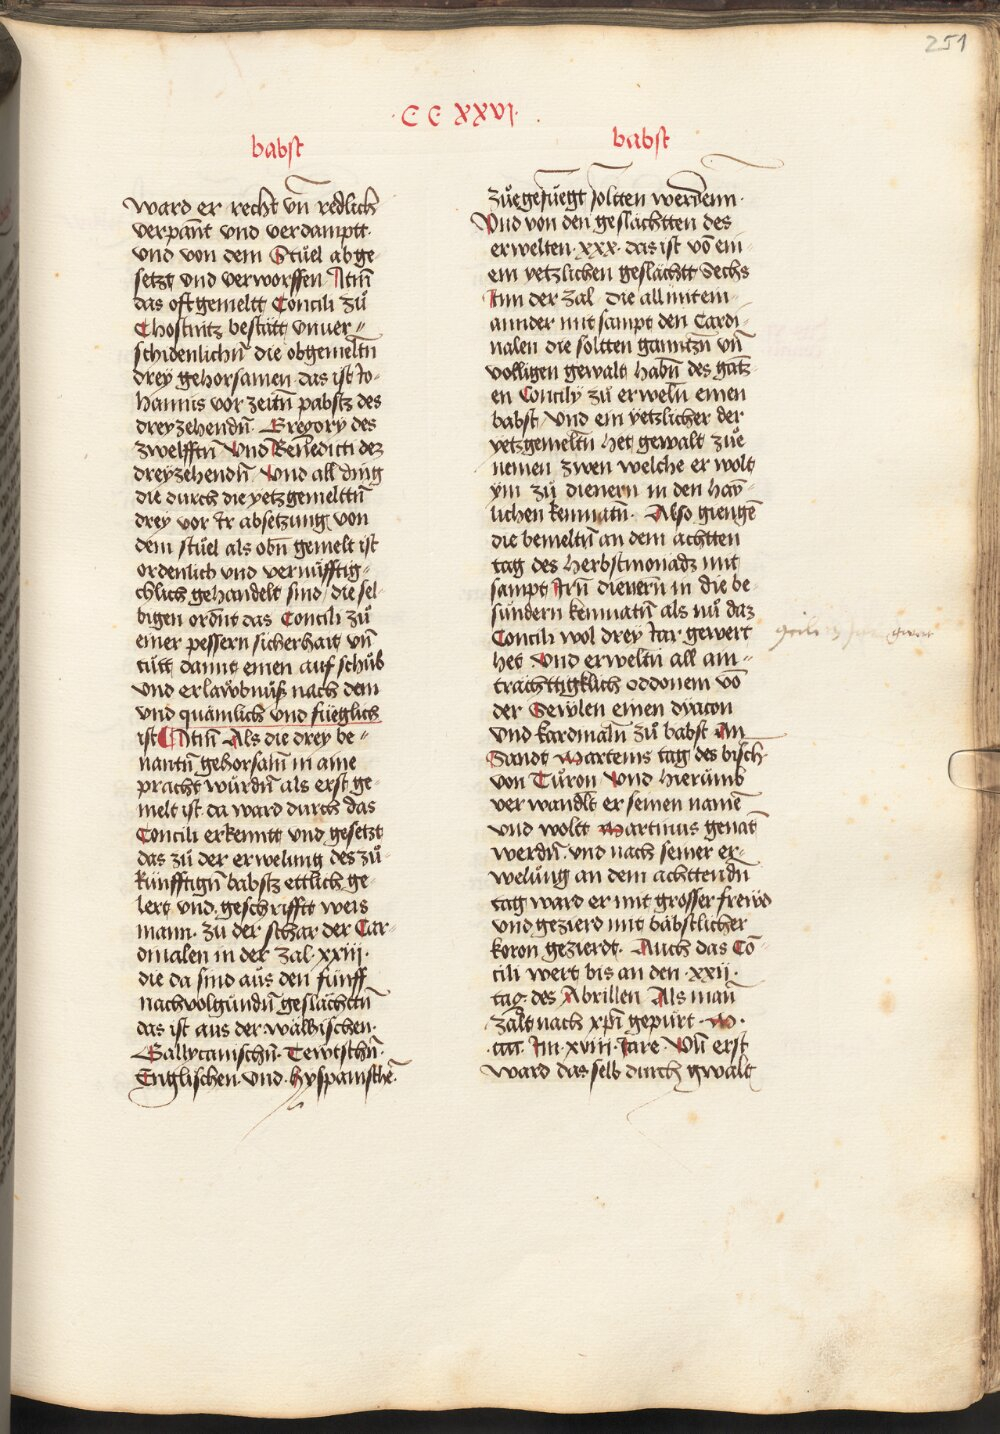 251
·C C XXVI·
babst
ward er recht vn̄ redlich
verpān̄t vnd verdamptt·
vnd von dem Stůel abge-
setzt vnd verworffen Itm̄
das oft gemeltt Concili zů
Chostnitz bestätt vnuer-
schidenlichn̄ die obgemeltn̄
dreÿ gehorsamen· das ist Jo-
hannis vor zeitn̄ pabstz des
dreyzehendn̄· Gregory des
zwelfftn̄ Vnd Benedicti dez
dreÿzehendn̄ Vnd all ding
die durch die yetzgemelttn̄
drey vor Ir absetzung von
dem stůel als obn̄ gemelt ist
ordenlich vnd vernůfftig-
chlich gehandelt sind die sel-
bigen ordn̄t das Concili zů
einer pessern sicherhait vn̄
tůtt damit einen auf schůb
vnd erlawbnůß nach dem
vnd quämlich vnd füeglich
ist Itm̄ Als die drey be-
nantn̄ gehorsam̄ in aine
pracht wůrdn̄ als erst ge-
melt ist da ward durch das
Concili erkenntt vnd gesetzt
das zů der erwelung des zů-
künfftign̄ babstz ettlich ge-
lert vnd geschrifftt weis
mann· zu der schar der Car-
dinalen in der zal· xxiij·
die da sind aůs den fünff
nachvolgundn̄ geslächttn̄
das ist aus der wällischen·
Gallycanischn̄· Tewtschn̄·
Englischen· vnd· Hyspanischē·
babst
zůegefuegt soltten werdenn·
Vnd von den geslächtten des
erwelten· xxx· das ist vō ein-
em yetzlichen geslächtt Sechs
Inn der zal die all mit ein-
annder mit sampt den Cardi-
nalen die soltten ganntzn̄ vn̄
volligen gewalt habn̄ des gātz-
en Concily zů erweln̄ einen
babst/ Vnd ein yetzlicher der
yetzgemeltn̄ het gewalt zůe
nemen zwen welche er wolt
ÿm zů dienern in den haÿ-
lichen kemnatn̄· Also giengē
die bemeltn̄ an dem achtten
tag des herbstmonadz mit
sampt Irn̄ dienern̄ in die be-
sündern kemnatn̄ als nů daz
Concili wol drey Jar gewert
het· Vnd erweltn̄ all ain-
trächttigklich oddonem vō
der Sewlen einen dyacon
vnd kardinaln̄ zů babst An
Sandt Marteins tag des bisch·
von Tůron Vnd hierumb
verwandlt er seinen namē
vnd woltt Martinus genāt
werdn̄· vnd nach seiner er-
welůng an dem achttendn̄
tag ward er mit grosser frewd
vnd gezierd mit bäbstlicher
koron gezierdt· Auch das Cō-
cili wert bis an den· xxij·
tag· des Abrillen Als man̄
zalt nach xp̄i gepůrt· M·
·cccc· Im· xviij· Jare· Vn̄ erst
ward das selb durch gwalt